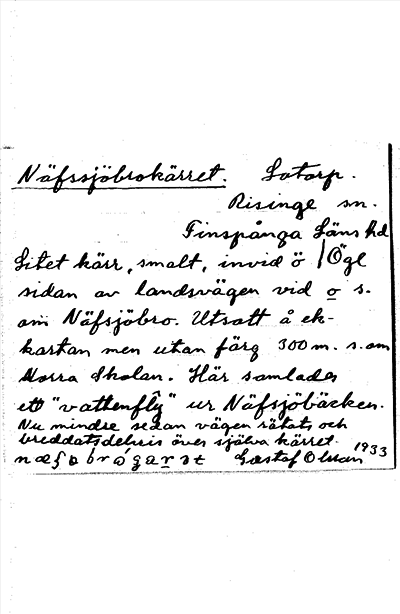 Näfssjöbrokärret. Lotorp.
Risinge sn.
Finspånga Läns hd
Litet kärr, smalt, invid ö / Ögl
sidan av landsvägen vid o s.
om Näfsjöbro. Utsatt å ek-
kartan men utan färg 300 m. s. om
Norra Skolan. Här samlades
ett "vattenflÿ" ur Näfsjöbäcken.
Nu mindre sedan vägen rätats och
breddats delvis över själva kärret.
Gustaf Olsson 1933